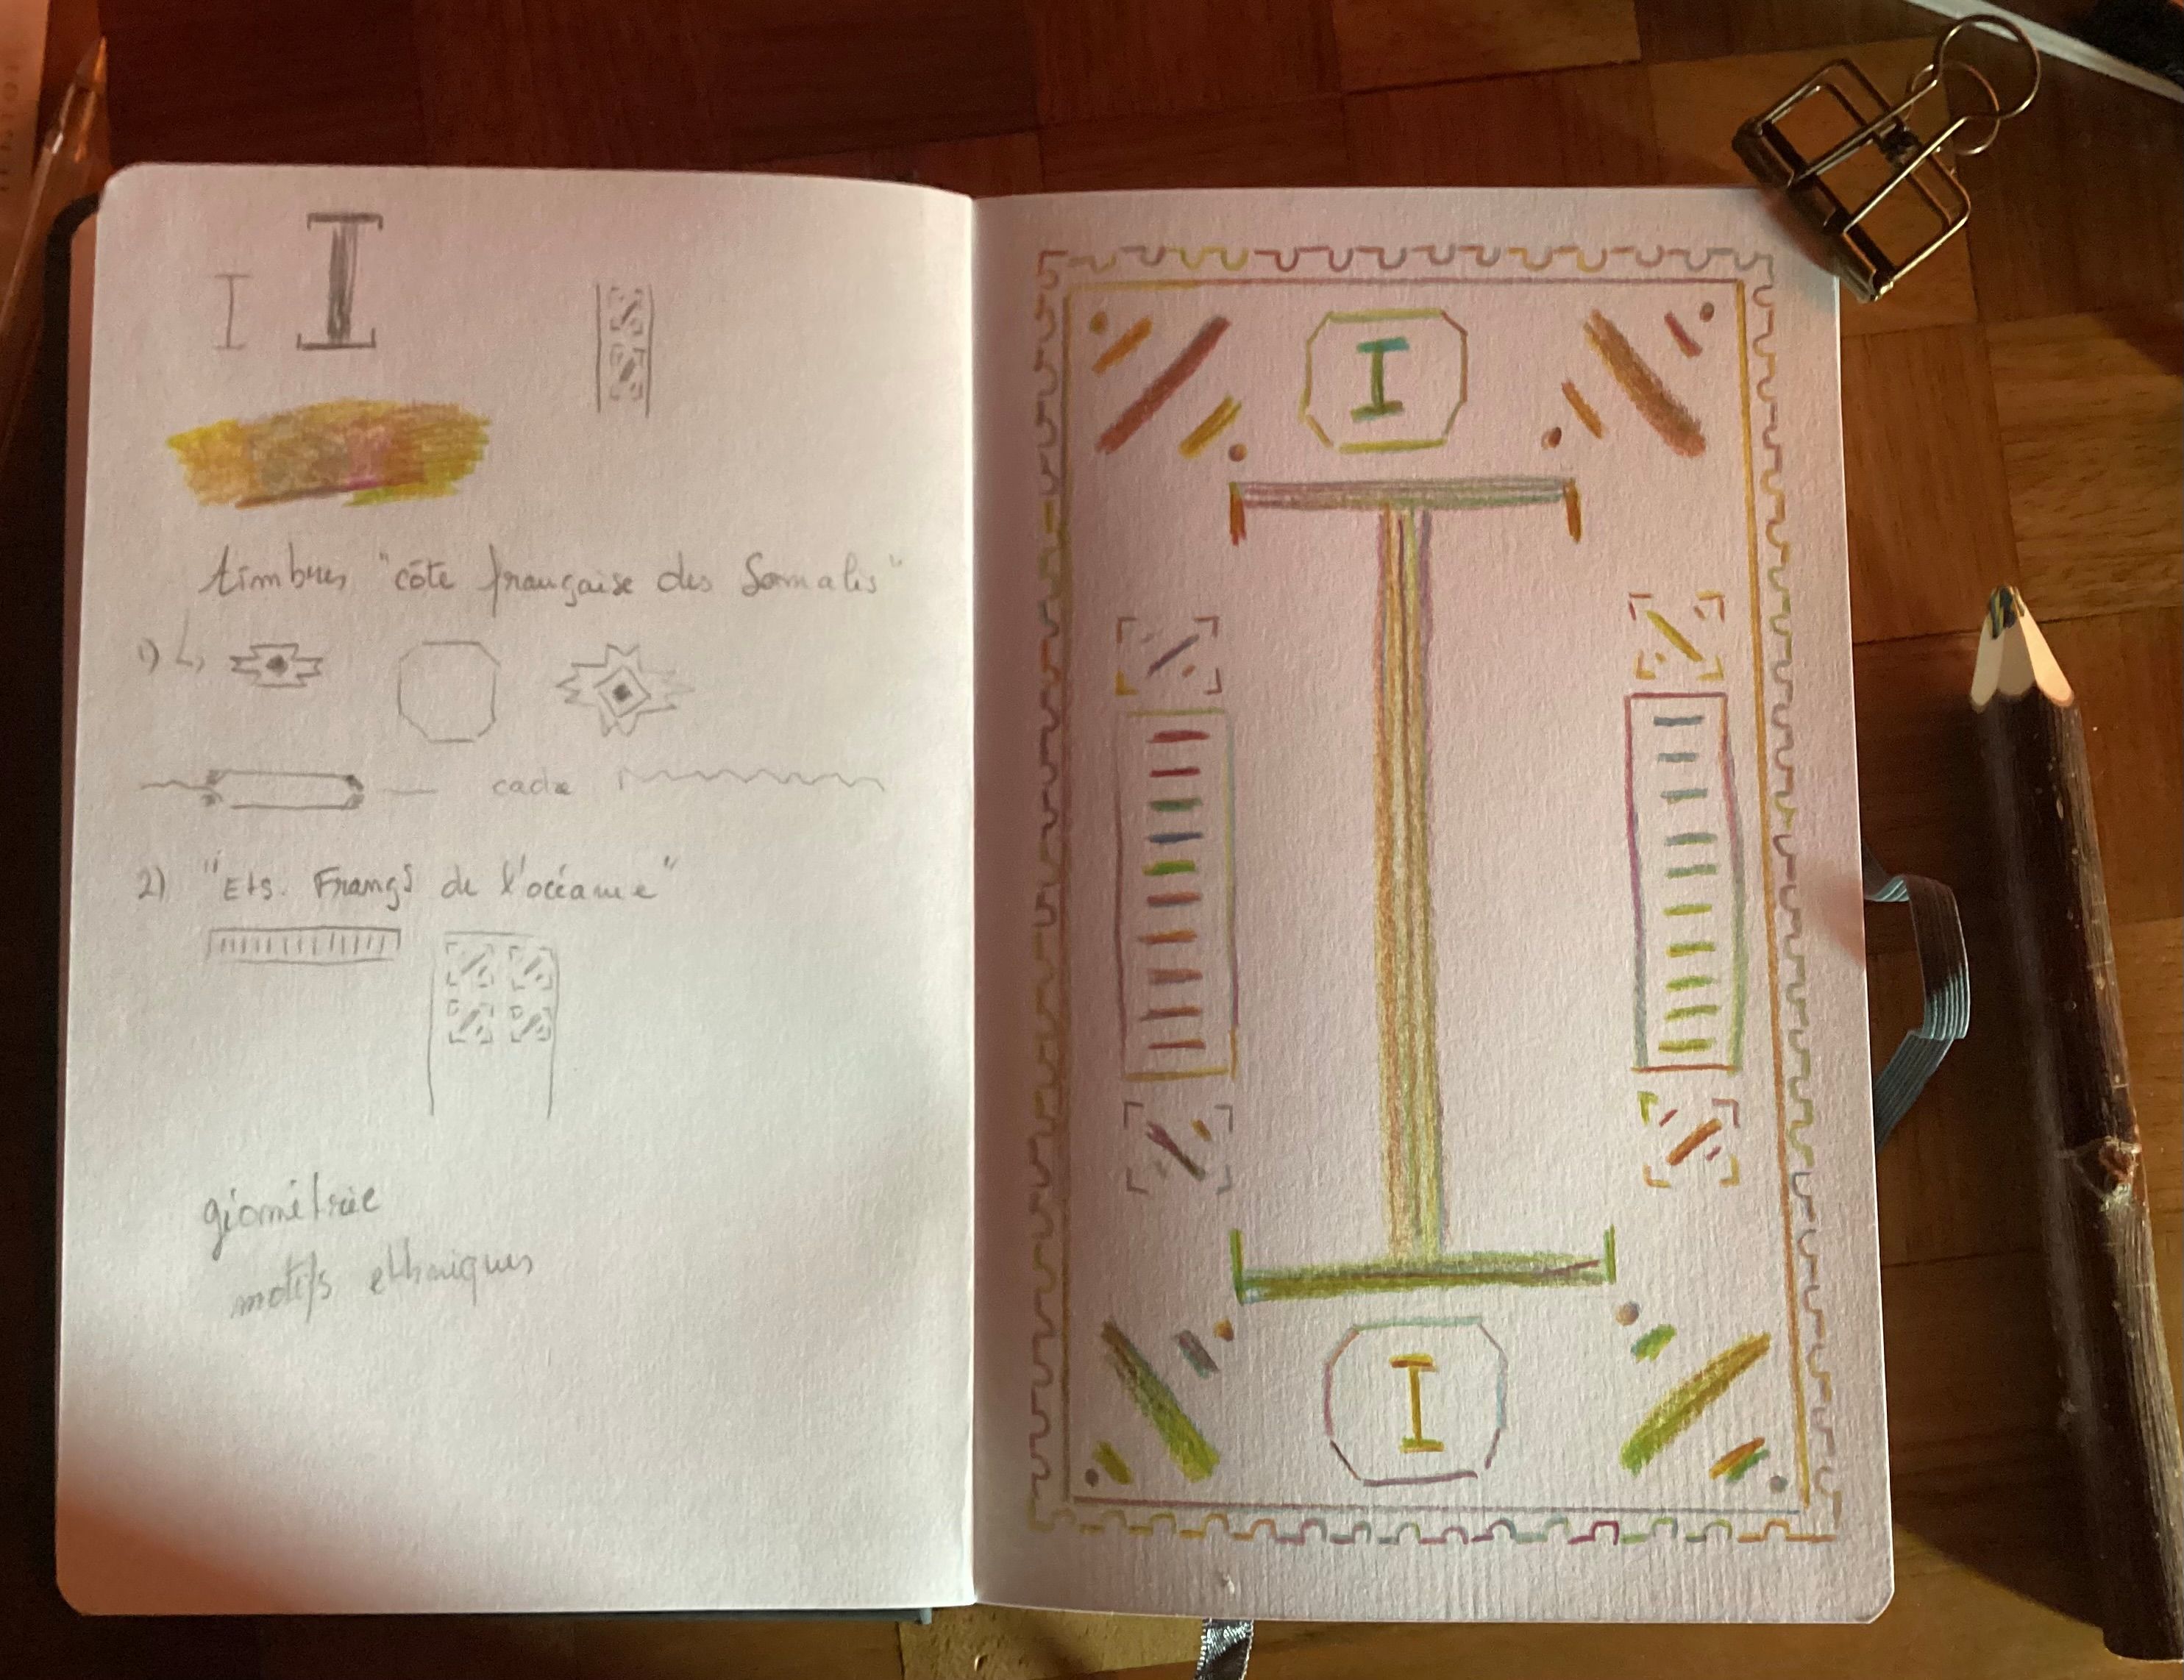 I I
timbres "côte française des Somalis"
1)
cadre
2) "Ets. Françs de l'océanie"
géométrie
motifs ethniques
I
I
I